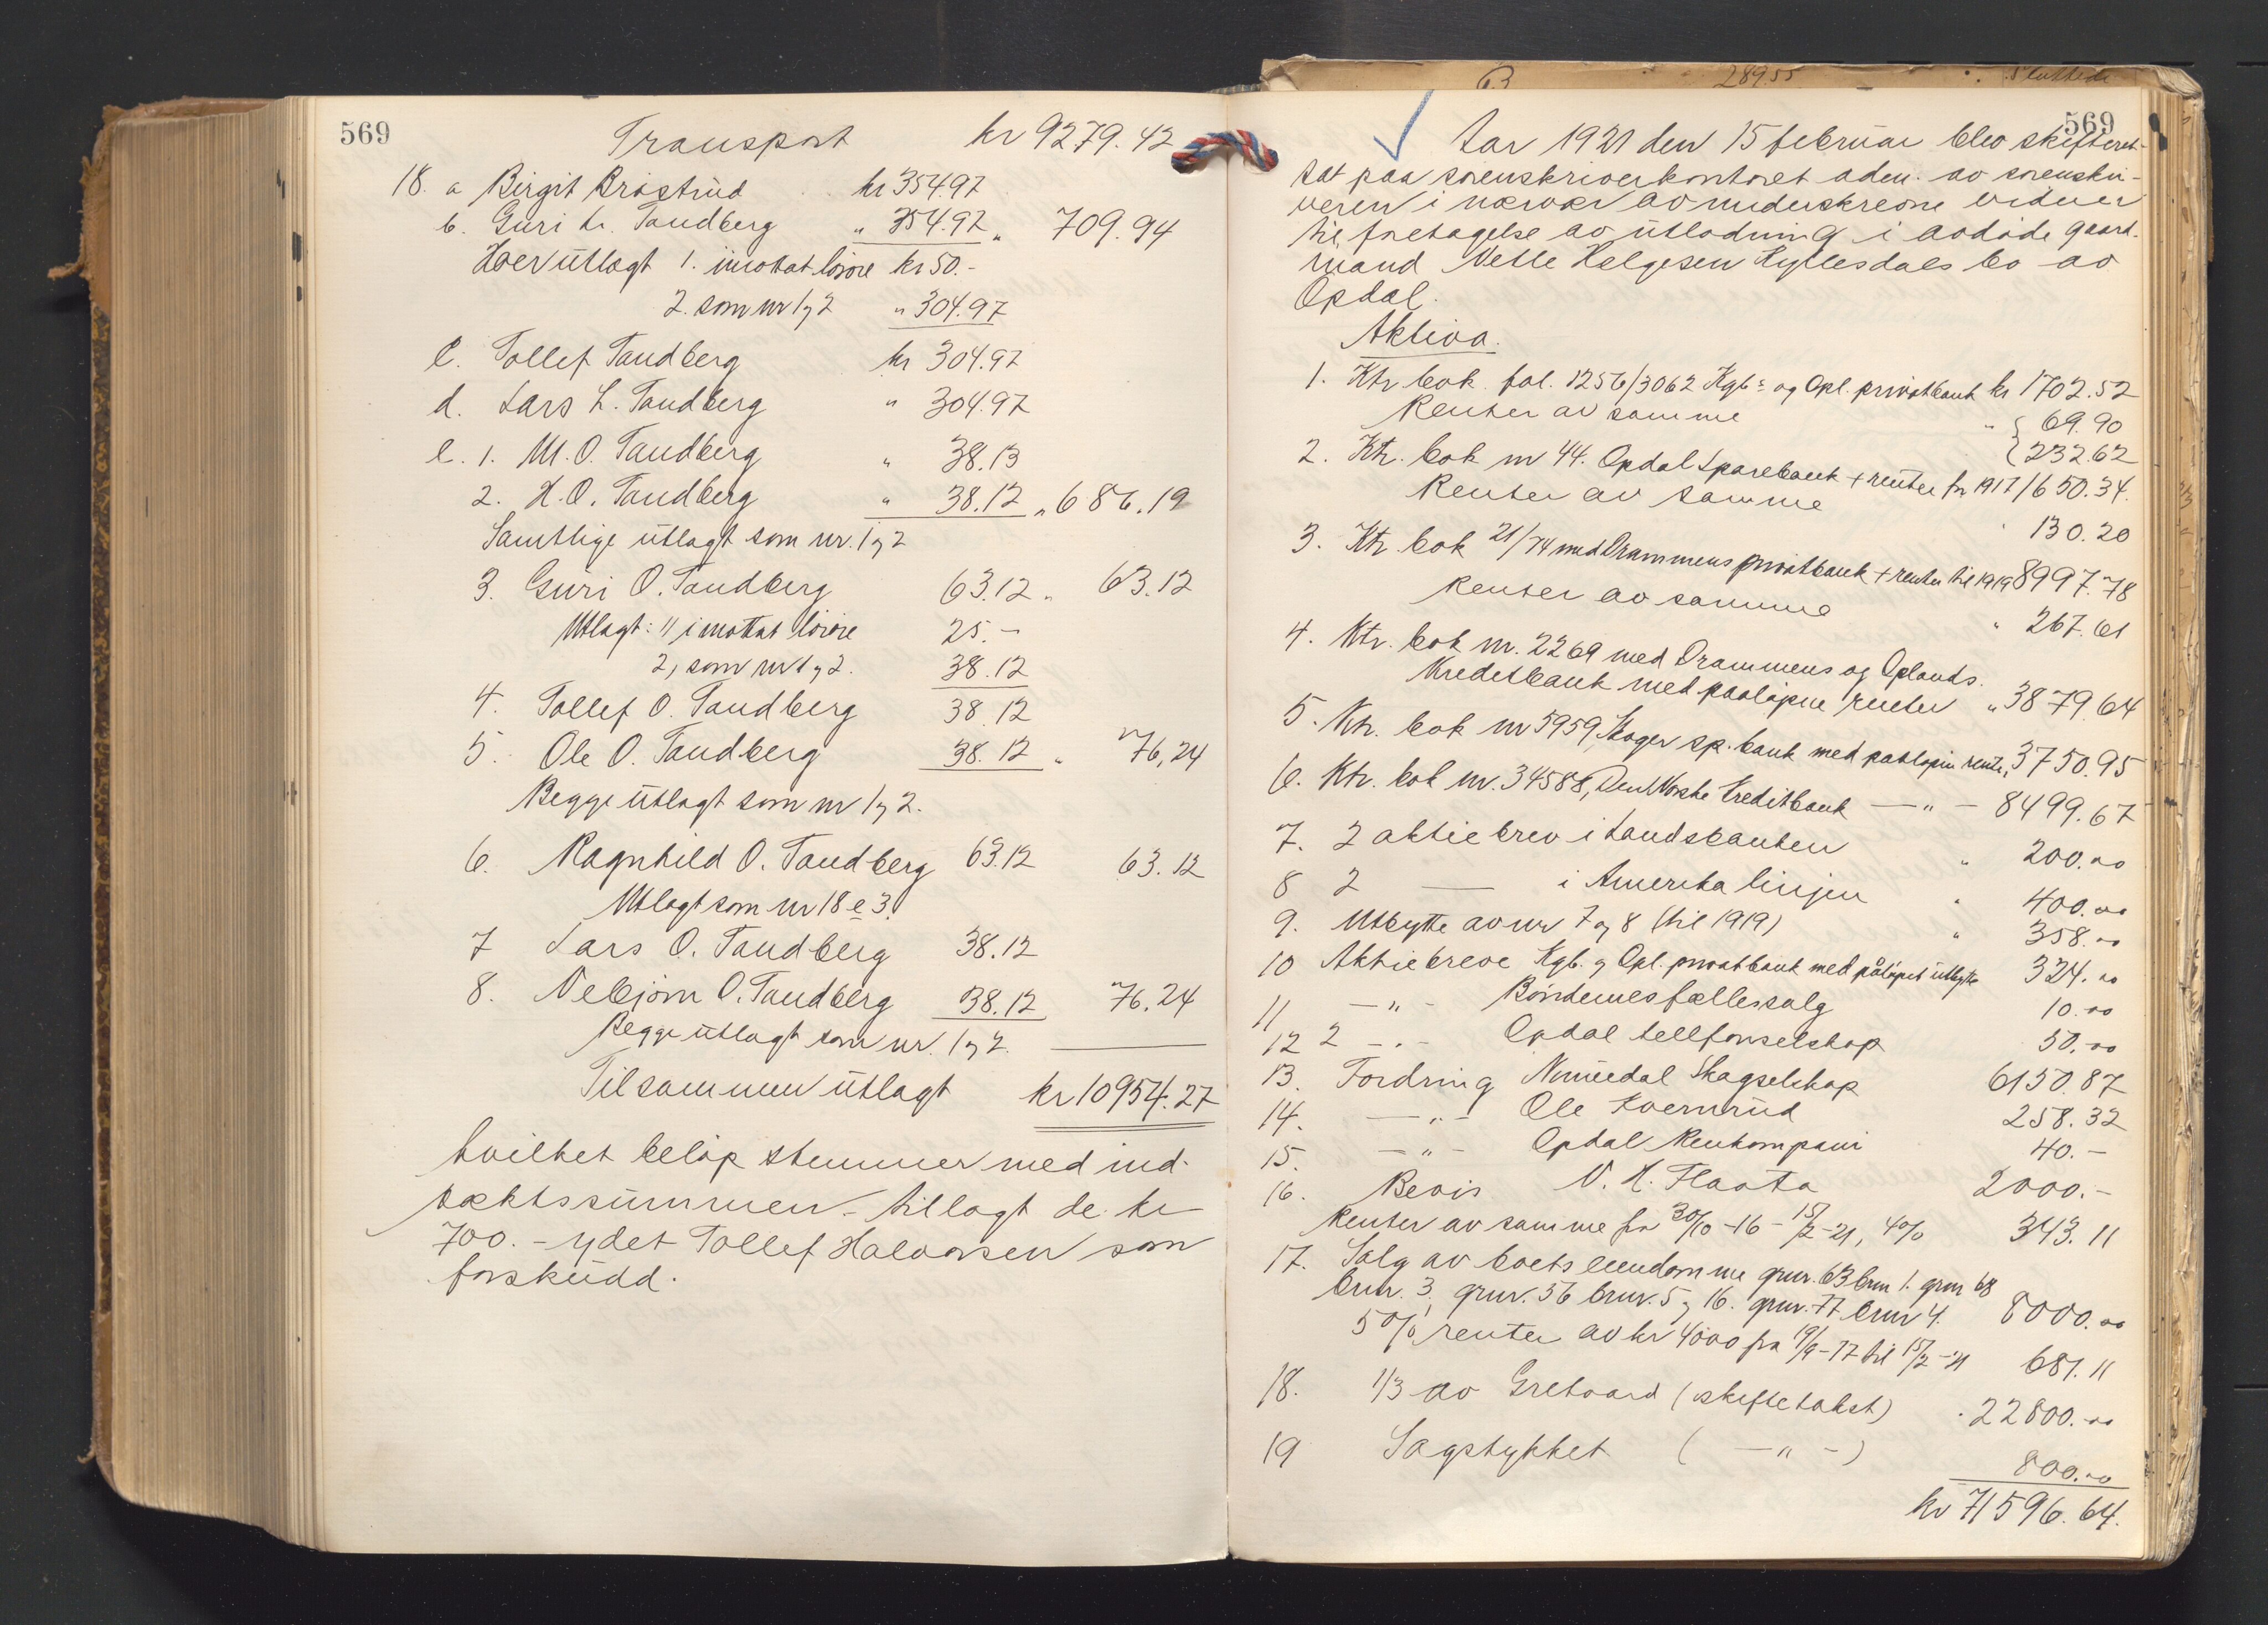 569
Transport kr 9279.42
18. a Birgit Bråstrud kr 354.97
b. Guri L. Tandberg " 354.97 " 709.94
Hver utlagt 1. i mottat løsøre kr 50.-
2. som nr 1 og 2 " 304.97
c. Tollef Tandberg kr 304.97
d. Lars L. Tandberg " 304.97
e. 1. M. O. Tandberg " 38.13
2. H. O. Tandberg " 38.12 " 686.19
Samtlige utlagt som nr. 1 og 2
3. Guri O. Tandberg 63.12 " 63.12
Utlagt: 1, i mottat løsøre 25.-
2, som nr 1 og 2. 38.12
4. Tollef O. Tandberg 38.12
5. Ole O. Tandberg 38.12 " 76,24
Begge utlagt som nr 1 og 2.
6. Ragnhild O. Tandberg 63.12 63.12
Utlagt som nr 18 e 3.
7 Lars O. Tandberg 38.12
8. Nebjørn O. Tandberg 38.12 76.24
Begge utlagt som nr. 1 og 2.
Tilsammen utlagt kr 10954.27
hvilket beløp stemmer med ind-
tæktssummen tillagt de kr
700.- ydet Tollef Halvorsen som
forskudd.
63 289.55 Sluttede
569
Aar 1921 den 15 februar blev skifteret-
sat paa sorenskriverkontoret adm. av sorenskri-
veren i nærvær av underskrevne vidner
til foretagelse av utlodning i avdøde gaard-
mand Vetle Helgesen Hyllesdals bo av
Opdal.
Aktiva.
1. Ktr. bok fol. 1256/3062 Kgb. og Opl. privatbank kr 1702.52
Renter av samme " { 69.90
{ 232.62
2. Ktr. bok nr 44. Opdal Sparebank + renter for 1917 1650.34.
Renter av samme " 130.20
3. Ktr. bok 21/74 med Drammens privatbank + renter til 1919 8997.78
Renter av samme " 267.61
4. Ktr. bok nr. 2269 med Drammens og Oplands
Kreditbank med paaløpne renter " 3879.64
5. Ktr. bok nr 5959 Skoger sp.bank med paaløpne rente, 3750.95
6. Ktr. bok nr. 34588, Den Norske Creditbank — " — 8499.67
7. 2 aktiebrev i Landsbanken " 200.00
8 2 — i Amerika linjen " 400.00
9. Utbytte av nr 7 og 8 (til 1919) " 358.00
10 Aktiebreve Kgb. og Opl. privatbank med påløpet utbytte 324.00
11 — " — Bøndernes fællessalg 10.00
12 2 — " — Opdal tellfonselskap 50.00
13. Fordring Numedal Skogselskap 6150.87
14. — " — Ole Kvernrud 258.32
15. — " — Opdal Renkompani 40.-
16. Bevis N. H. Flaata 2000.-
Renter av samme fra 30/10-16 - 15/2-21, 4% 343.11
17. Salg av boets eiendomme gnr. 63 bnr 1. gnr 68
bnr. 3, gnr. 56 bnr. 5 og 16. gnr. 77 bnr 4. 8000.00
5% renter av kr 4000 fra 19/9-17 til 15/2-21 681.11
18. 1/3 av Gretvard (skiftetakst) 22800.00
19 Sagstykket ( — " — ) 800.00
kr 71596.64.